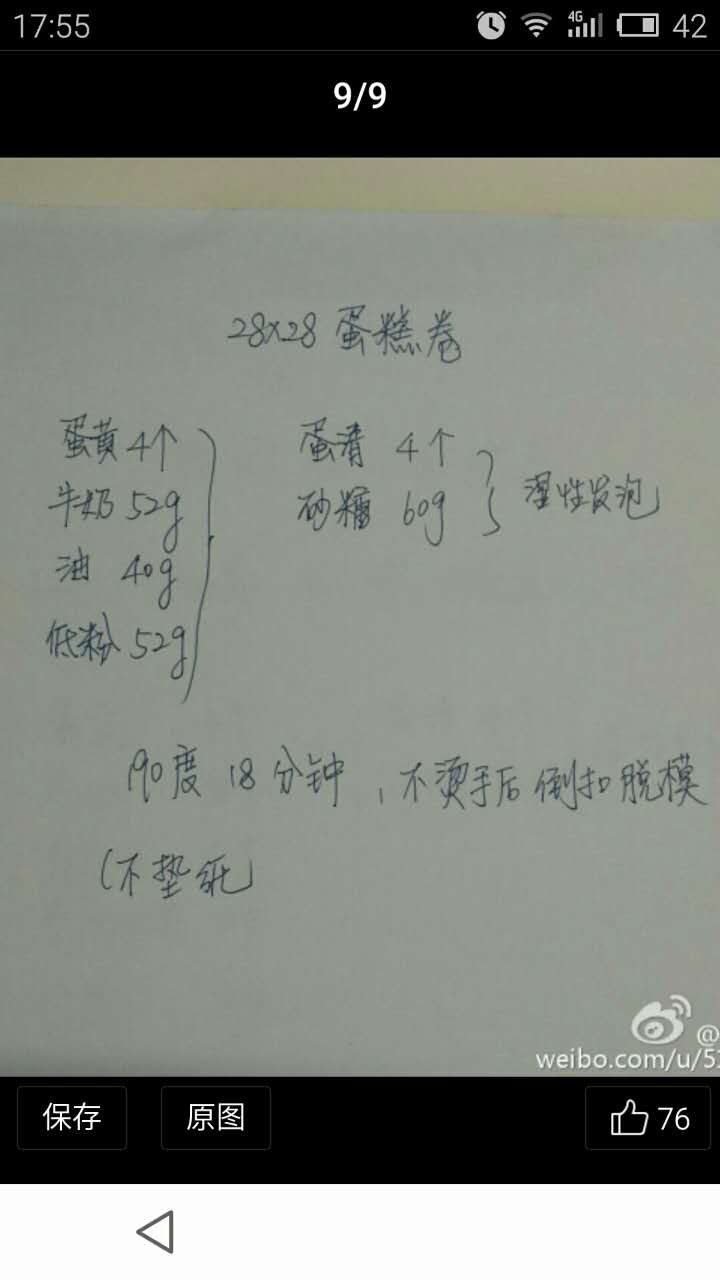 17:55
4G
42
9/9
28×28 蛋糕卷
蛋黄 4个
牛奶 52g
油 40g
低粉 52g
蛋清 4个
砂糖 60g
湿性发泡
190度 18分钟,不烫手后倒扣脱模
(不垫纸)
@
weibo.com/u/5
保存
原图
76